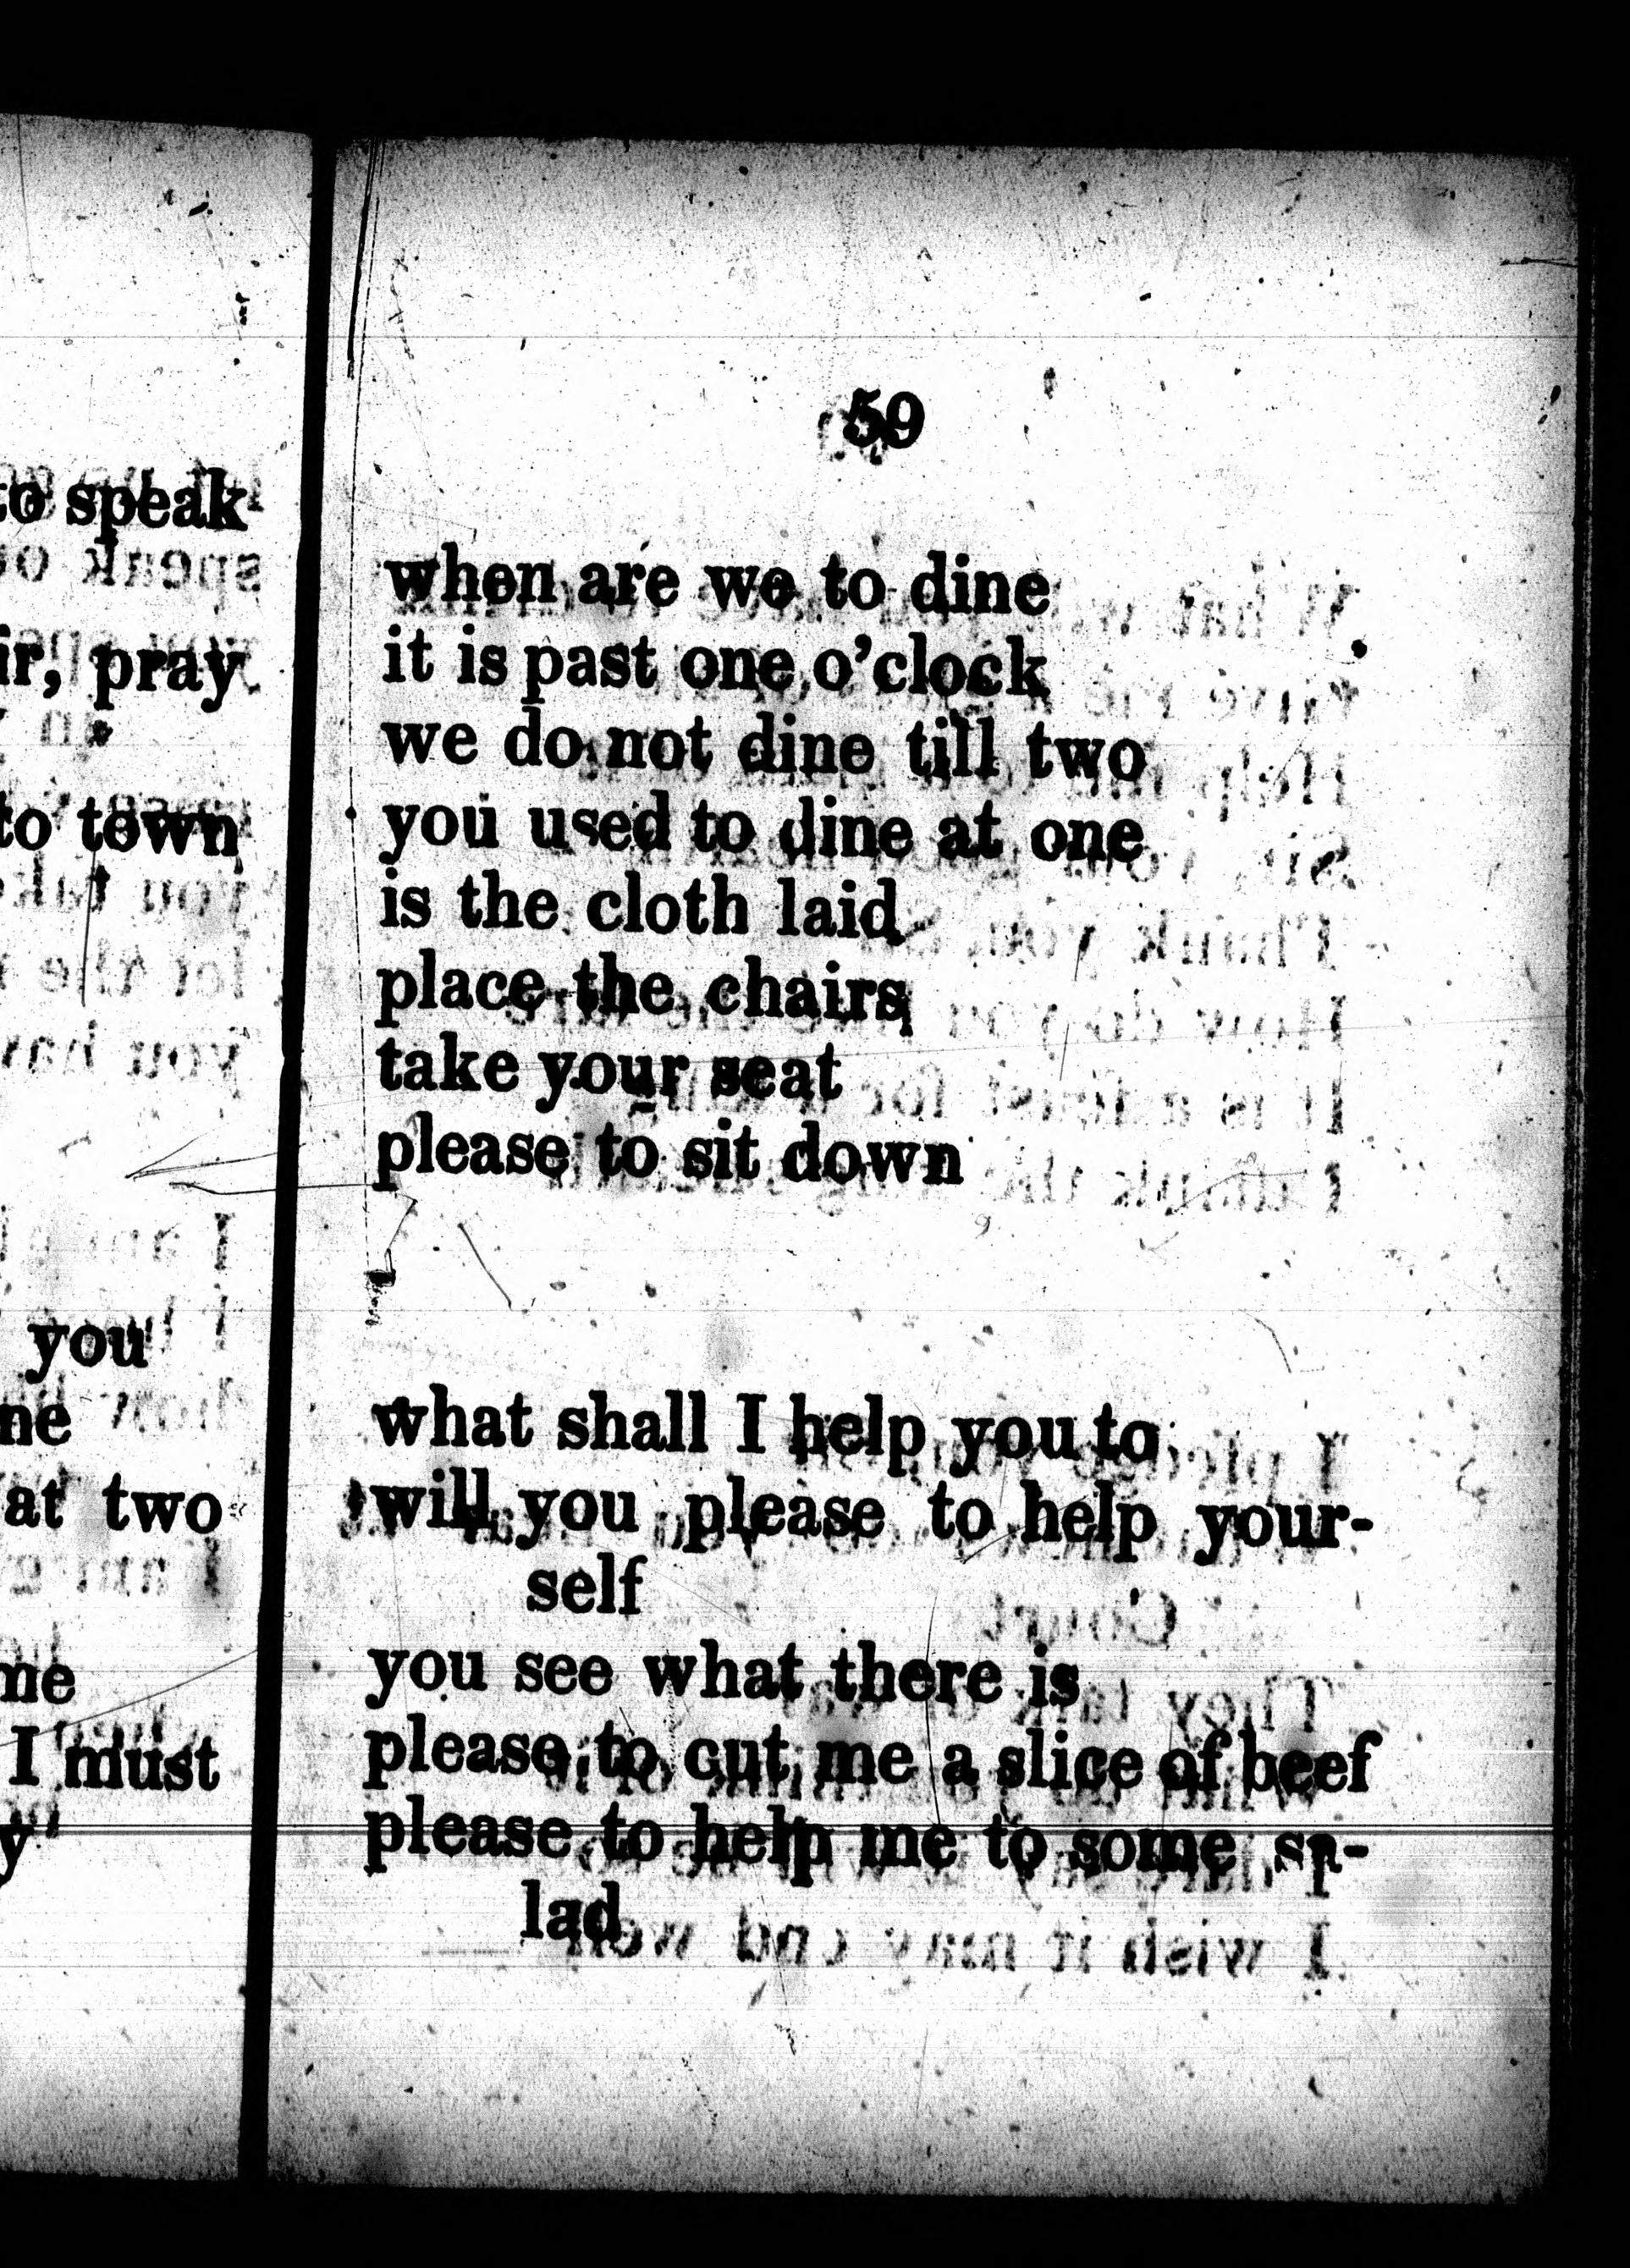 to speak
ir, pray
to town
you
at two
I must
59
when are we to dine
it is past one o'clock
we do not dine till two
you used to dine at one
is the cloth laid
place the chairs
take your seat
please to sit down
what shall I help you to
will you please to help your-
self
you see what there is
please to cut me a slice of beef
please to help me to some sa-
lad